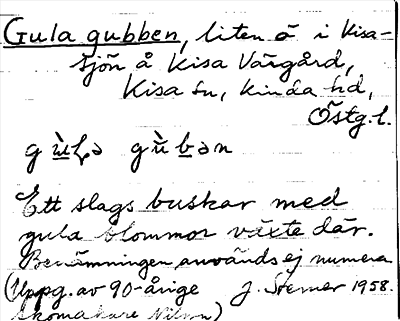 Gula gubben, liten ö i Kisa-
sjön å Kisa Värgård,
Kisa sn, Kinda hd,
Östg.l.
Ett slags buskar med
gula blommor växte där.
Benämningen används ej numera
(Uppg. av 90-årige J. Sterner 1958.
skomakare Nilson)